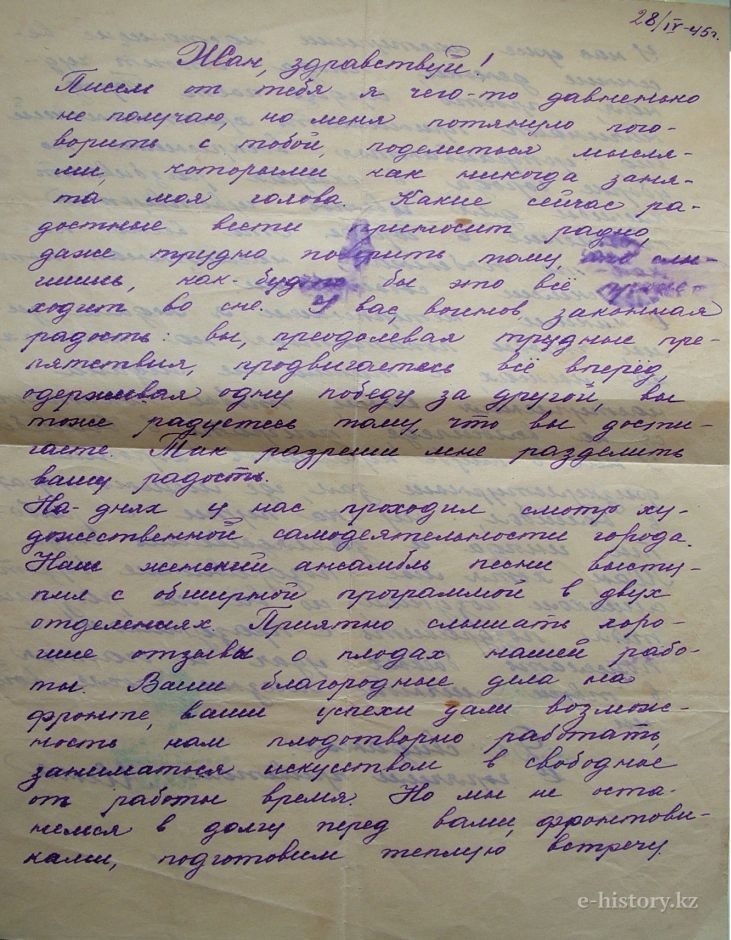 28/IV-45г.
Жан, здравствуй!
Писем от тебя я чего-то давненько
не получаю, но меня потянуло пого-
ворить с тобой, поделиться мысля-
ми, которыми как никогда заня-
та моя голова. Какие сейчас ра-
достные вести приносит радио,
даже трудно поверить тому, что слы-
шишь, как-будто бы это всё проис-
ходит во сне. У вас, воинов законная
радость: вы, преодолевая трудные пре-
пятствия, продвигаетесь всё вперёд,
одерживая одну победу за другой, вы
тоже радуетесь тому, что вы дости-
гаете. Так разреши мне разделить
вашу радость.
На-днях у нас проходил смотр ху-
дожественной самодеятельности города.
Наш женский ансамбль песни высту-
пил с обширной программой в двух
отделениях. Приятно слышать хоро-
шие отзывы о плодах нашей рабо-
ты. Ваши благородные дела на
фронте, ваши успехи дали возмож-
ность нам плодотворно работать,
заниматься искусством в свободное
от работы время. Но мы не оста-
немся в долгу перед вами, фронтови-
ками, подготовим теплую встречу.
e-history.kz